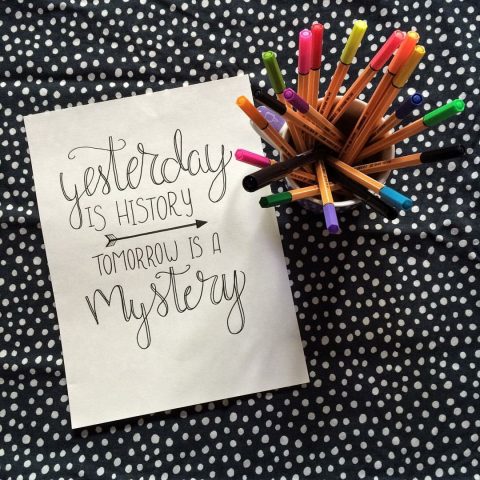 yesterday
IS HISTORY
TOMORROW IS A
Mystery